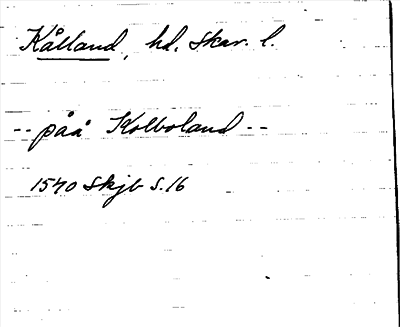 Kålland, hd. Skar. l.
-- påå Kolboland --
1540 Skjb S. 16